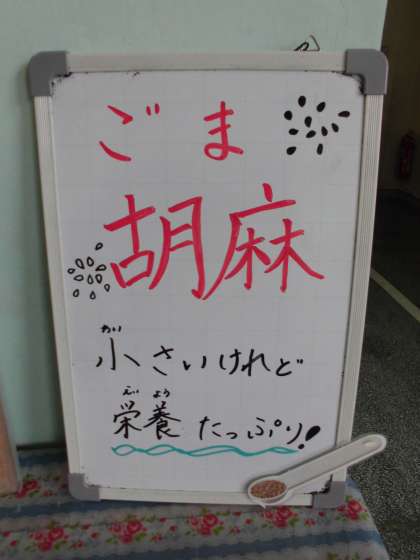 ごま
胡麻
ちい
小さいけれど
えい よう
栄養たっぷり!